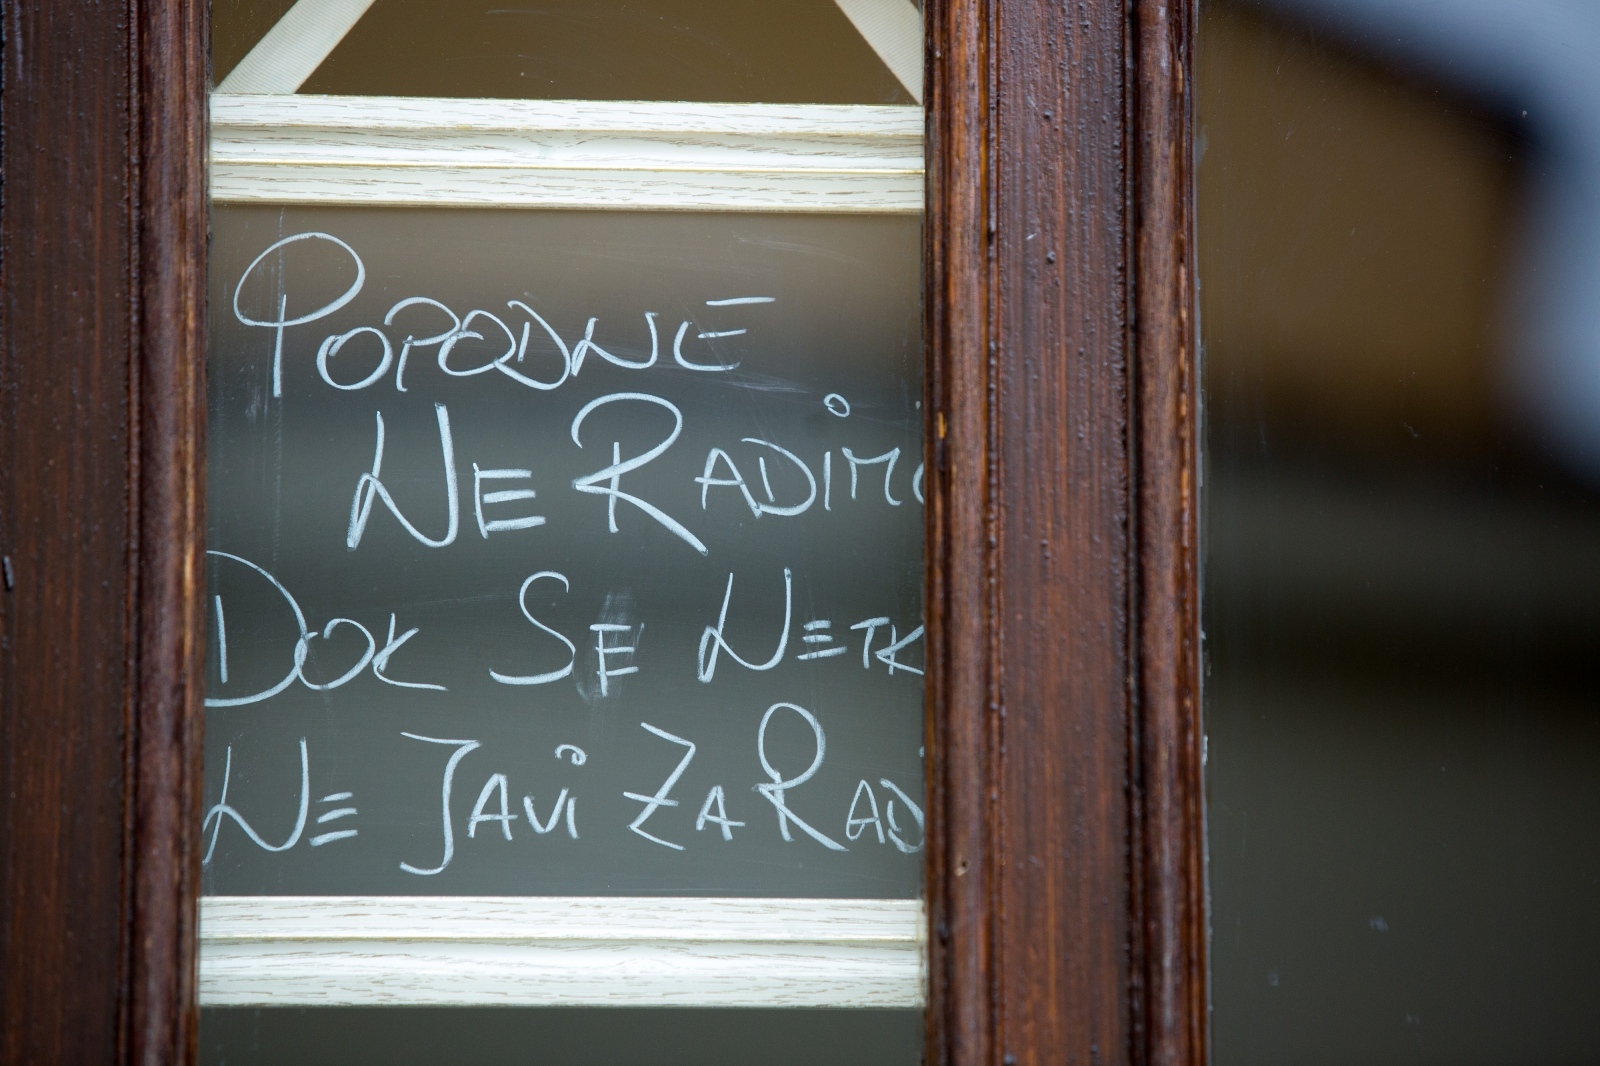 POPODNE
NE RADIMO
DOK SE NETK
NE JAVI ZA RAD